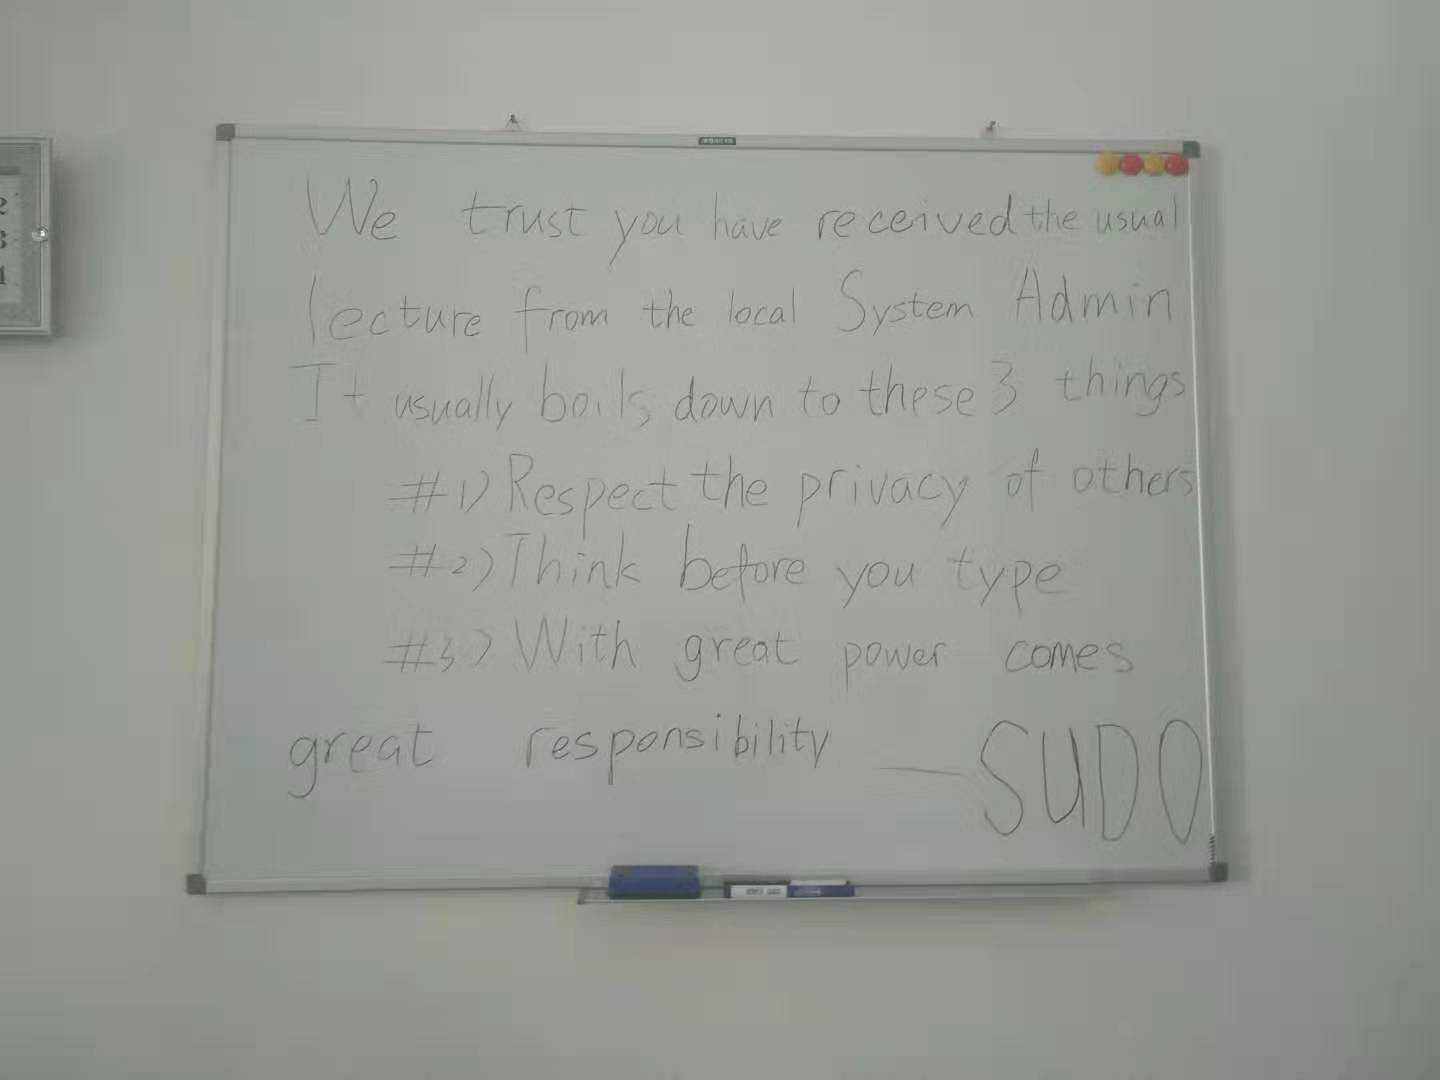 We trust you have received the usual
lecture from the local System Admin
It usually boils down to these 3 things
#1) Respect the privacy of others
#2) Think before you type
#3) With great power comes
great responsibility — SUDO
2
3
4